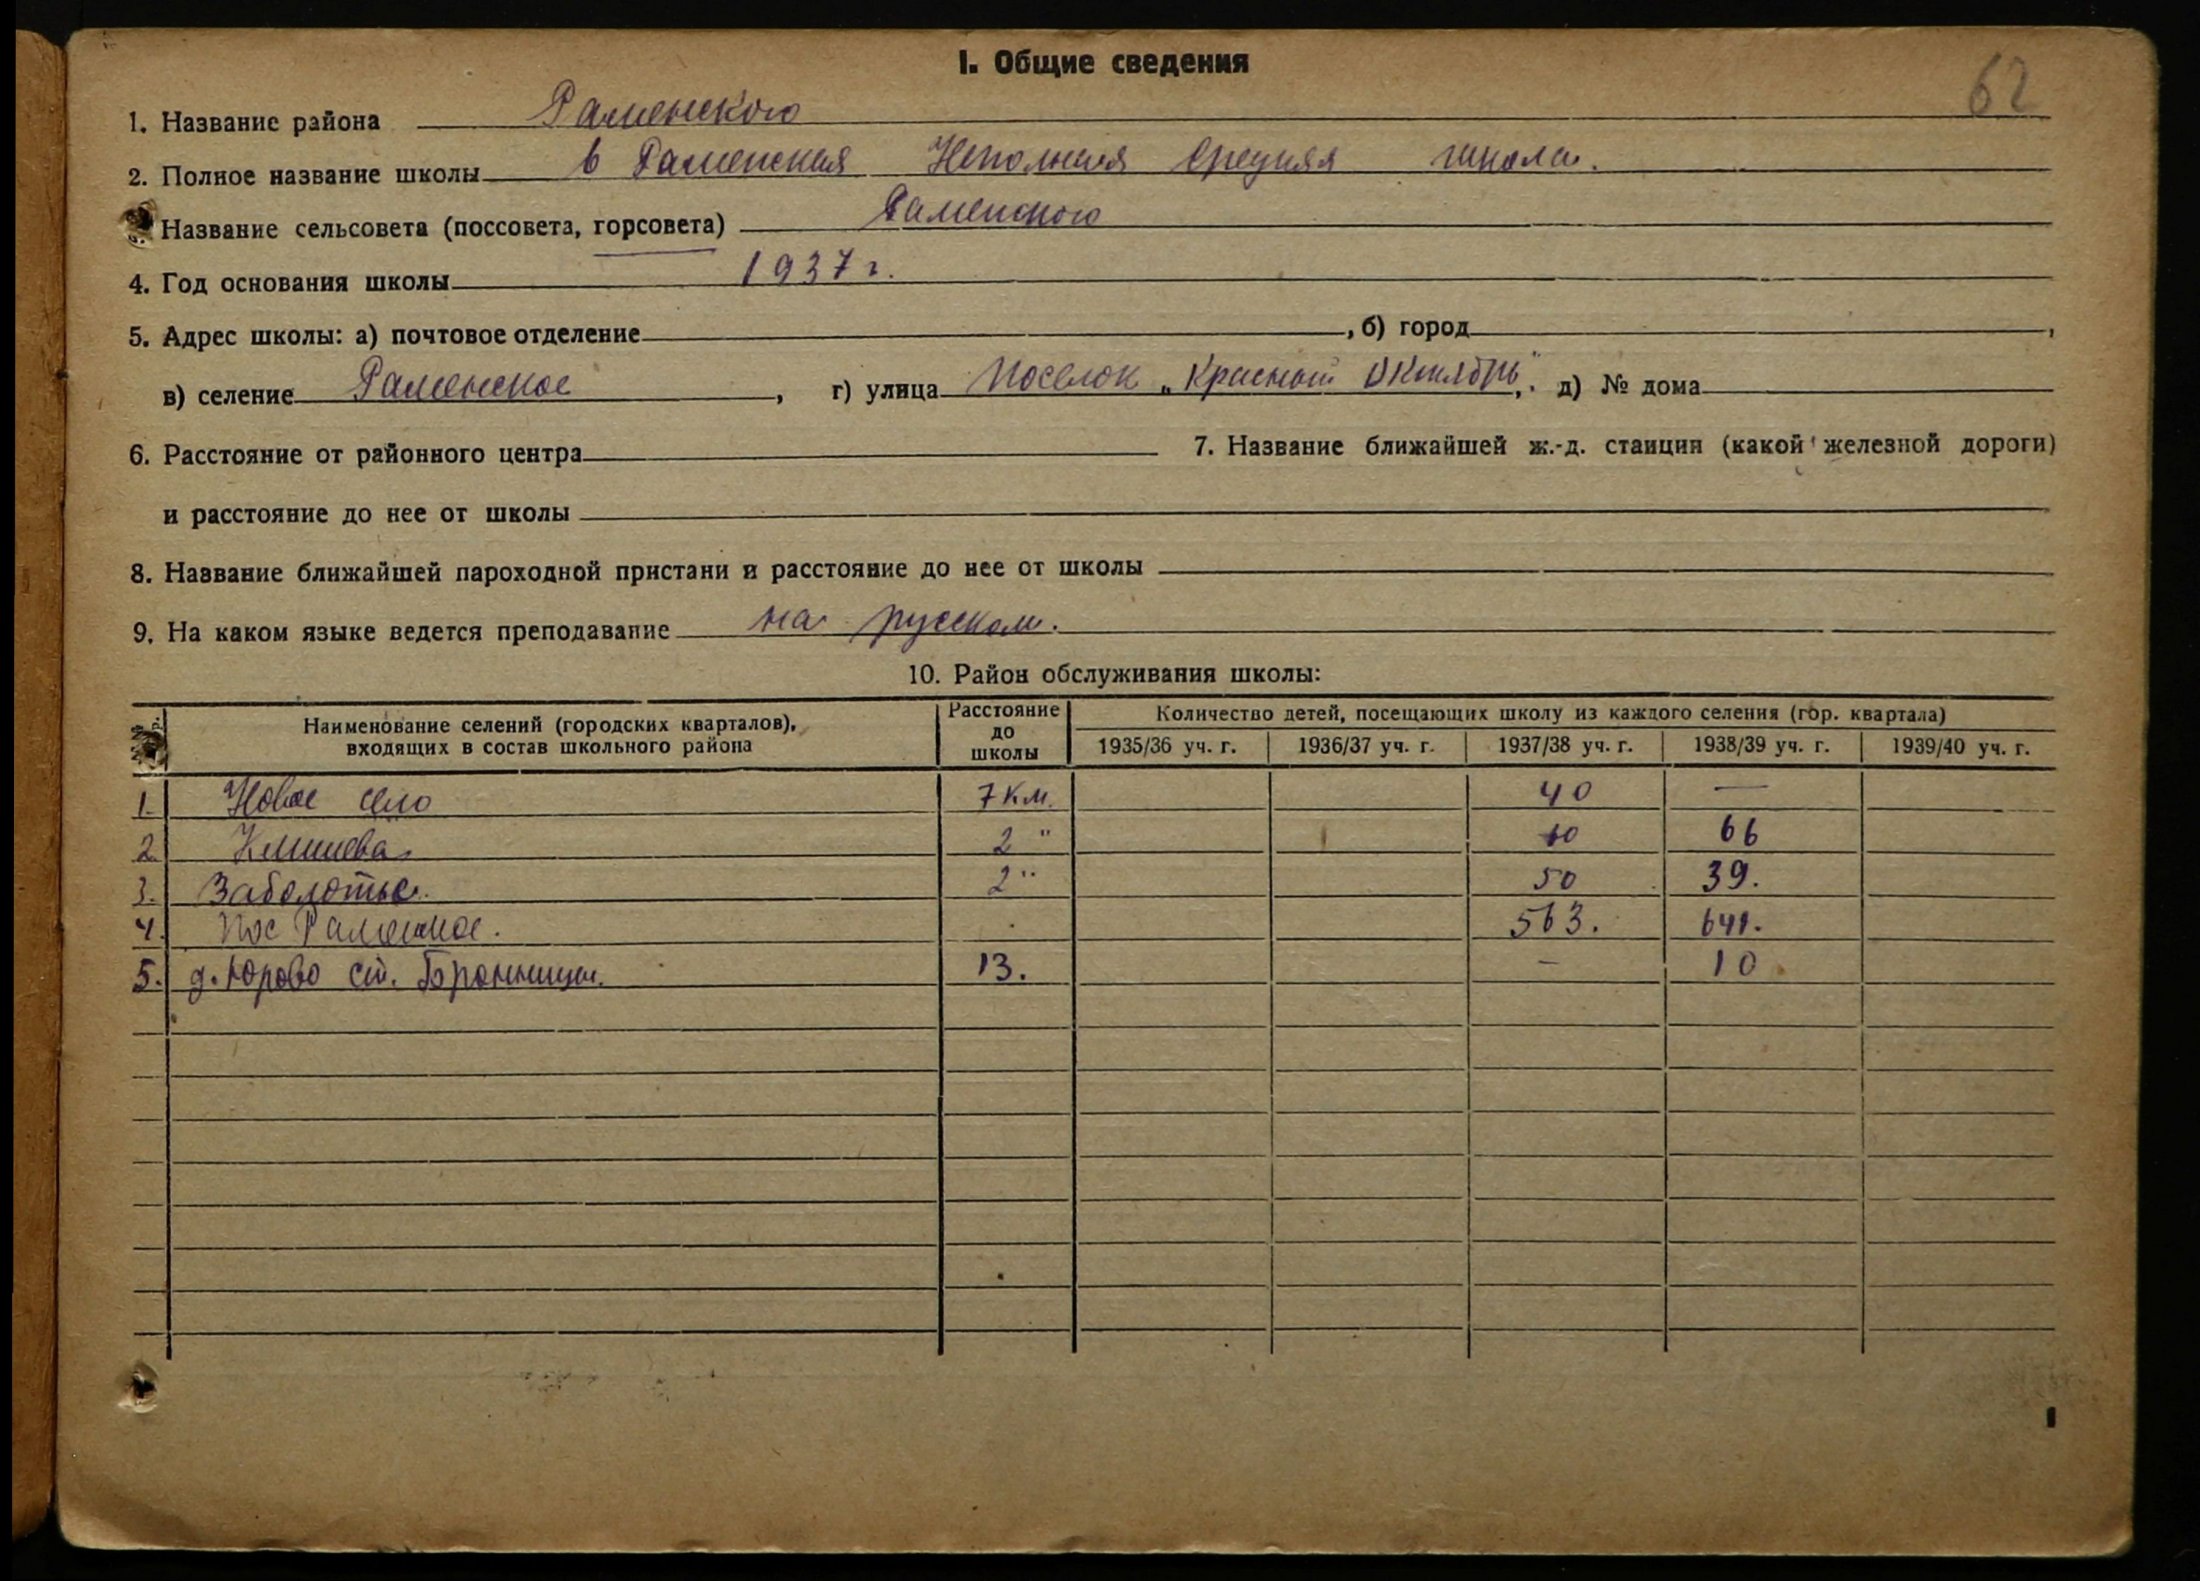 I. Общие сведения
62
1. Название района Раменского
2. Полное название школы 6 Раменская Неполная Средняя школа.
Название сельсовета (поссовета, горсовета) Раменского
4. Год основания школы 1937 г.
5. Адрес школы: а) почтовое отделение , б) город ,
в) селение Раменское , г) улица Поселок „Красный Октябрь", д) № дома
6. Расстояние от районного центра 7. Название ближайшей ж.-д. станции (какой железной дороги)
и расстояние до нее от школы
8. Название ближайшей пароходной пристани и расстояние до нее от школы
9. На каком языке ведется преподавание на русском.
10. Район обслуживания школы:
Наименование селений (городских кварталов), входящих в состав школьного района Расстояние до школы Количество детей, посещающих школу из каждого селения (гор. квартала)
1935/36 уч. г. 1936/37 уч. г. 1937/38 уч. г. 1938/39 уч. г. 1939/40 уч. г.
1. Новое село 7 км. 40 —
2. Клишева 2 " 10 66
3. Заболотье. 2 " 50 39.
4. Пос Раменское. 563. 641.
5. д. Юрово ст. Бронницы. 13. - 10
1